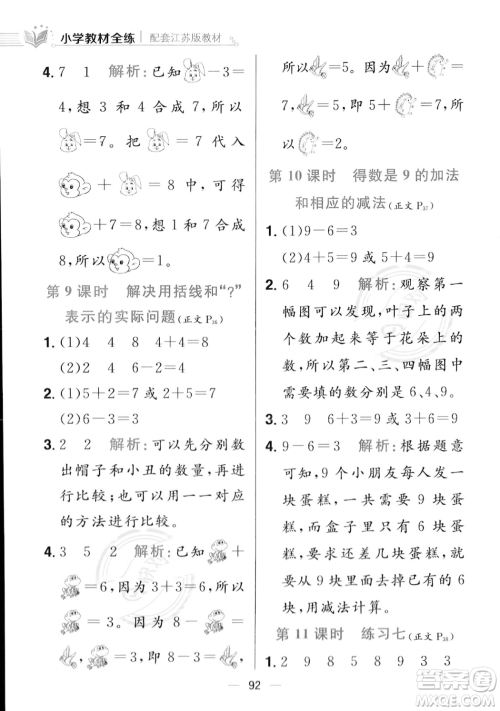 小学教材全练 配套江苏版教材
4. 7 1 解析:已知-3=
4, 想 3 和 4 合成 7, 所以
=7。把=7 代入
+=8 中, 可得
+7=8, 想 1 和 7 合
成 8, 所以=1。
第 9 课时 解决用括线和“?”
表示的实际问题(正文 P36)
1. (1)4 4 8 4+4=8
(2)2 4 6-2=4
2. (1)5+2=7 或 2+5=7
(2)6-3=3
3. 2 2 解析:可以先分别数
出帽子和小丑的数量, 再进
行比较;也可以用一一对应
的方法进行比较。
4. 3 5 2 解析:已知+
=6, 因为 3+3=6, 所以
=3。已知-=
3, 即-3=3, 所以
所以=5。因为+
=7, 即 5+=7, 所以
=2。
第 10 课时 得数是 9 的加法
和相应的减法(正文 P37)
1. (1)9-6=3
(2)4+5=9 或 5+4=9
2. 6 4 9 解析:观察第一
幅图可以发现, 叶子上的两
个数加起来等于花朵上的
数, 所以第二、三、四幅图中
要填的数分别是 6、4、9。
3. 9 3 6+3=9 3+6=9
4. 9-6=3 解析:根据题意可
知, 原来有 9 块蛋糕, 每个
小朋友吃 1 块蛋
糕, 所以 6 个小朋友吃了 6
块蛋糕, 求还剩几块蛋糕,
就是从 9 块蛋糕中去掉 6
块, 用减法计算。
第 11 课时 练习七(正文 P38)
1. 2 9 8 5 8 9 3 3
92